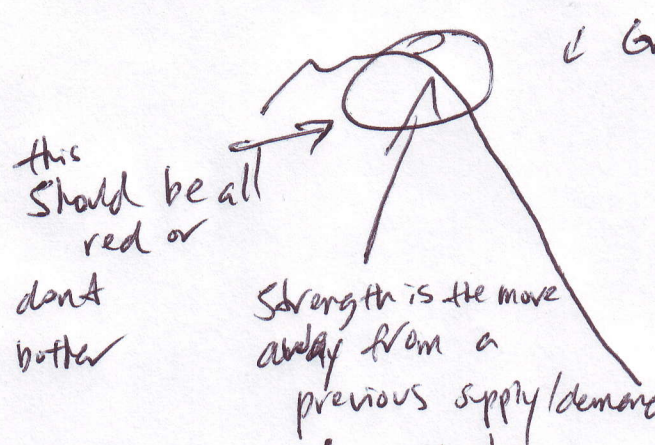 this
should be all
red or
dont
bother
strength is the move
away from a
previous supply/demand